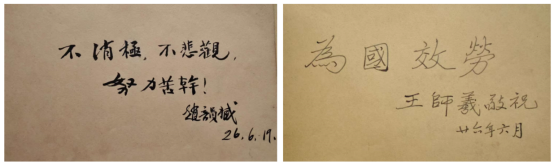 不消極，不悲觀，
努力苦幹！
26.6.17.
為國效勞
王師羲敬祝
廿六年六月